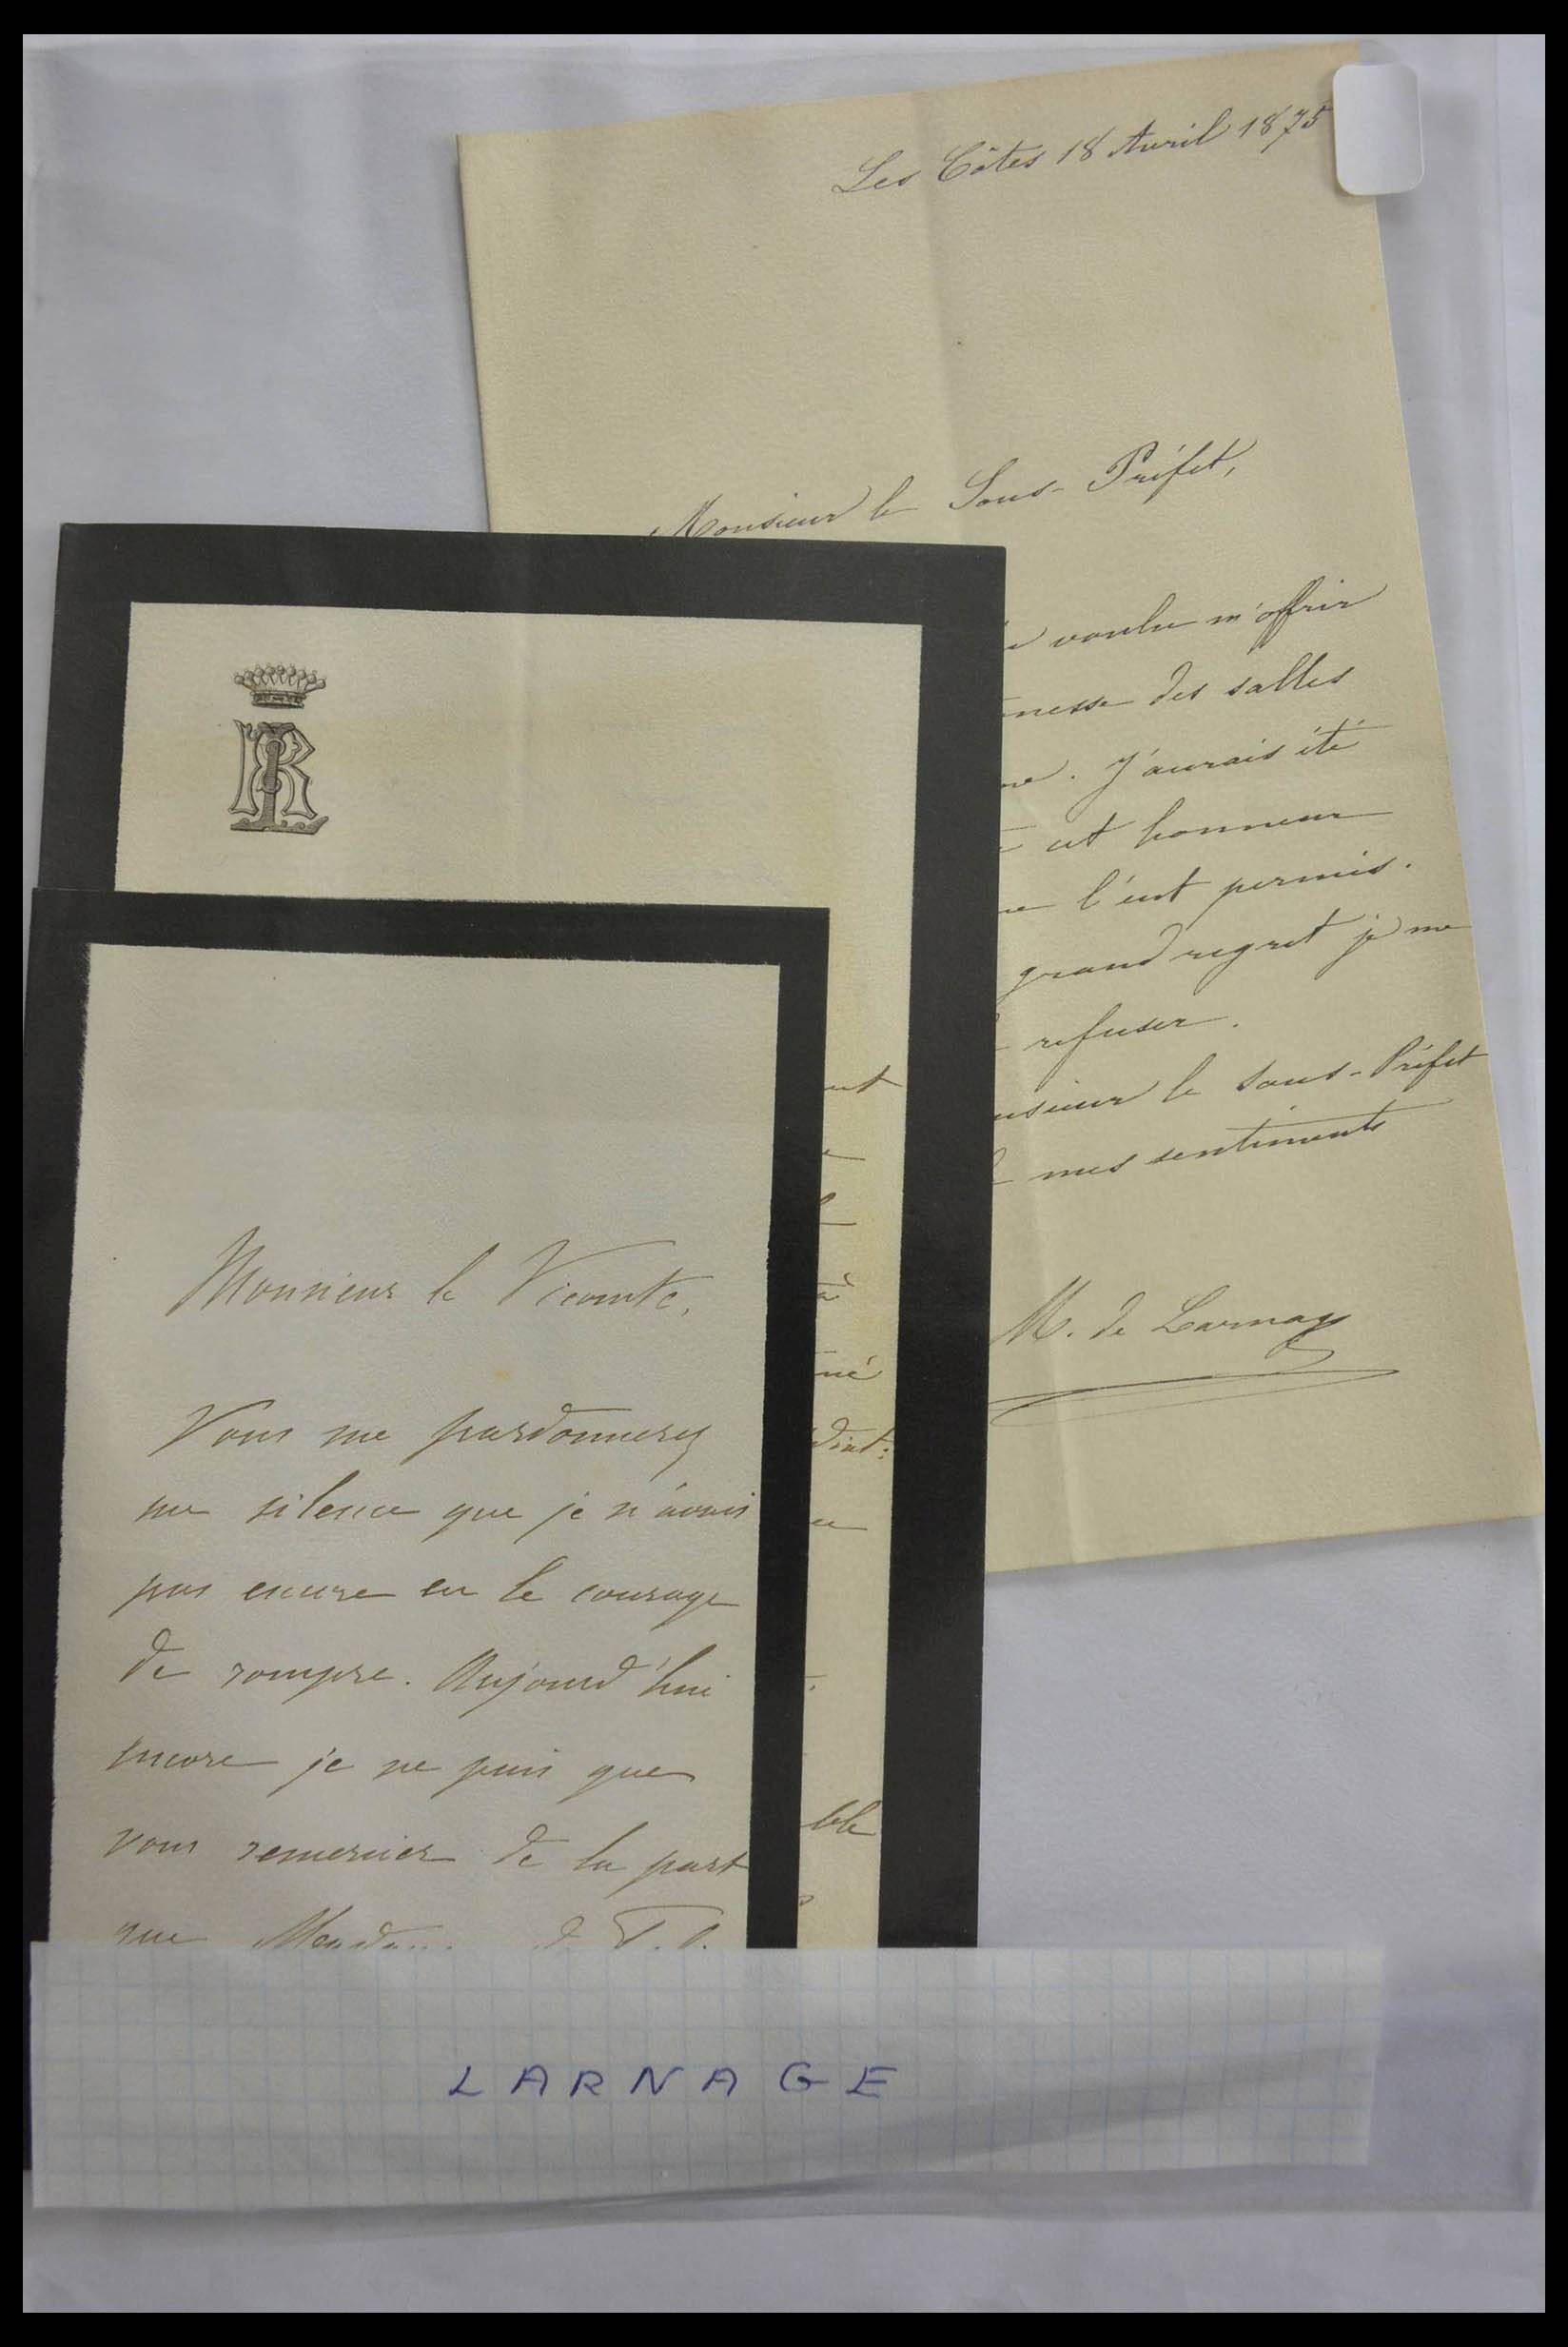 Les Côtes 18 Avril 1875
Monsieur le Sous-Préfet,
voulu m'offrir
messe des salles
J'aurais été
cet honneur
l'eut permis.
grand regret je me
refuser.
le Sous-Préfet
mes sentiments
M. de Larnage
ble
Monsieur le Vicomte,
Vous me pardonnerez
un silence que je n'avais
pas encore eu le courage
de rompre. Aujourd'hui
encore je ne puis que
vous remercier de la part
que
LARNAGE